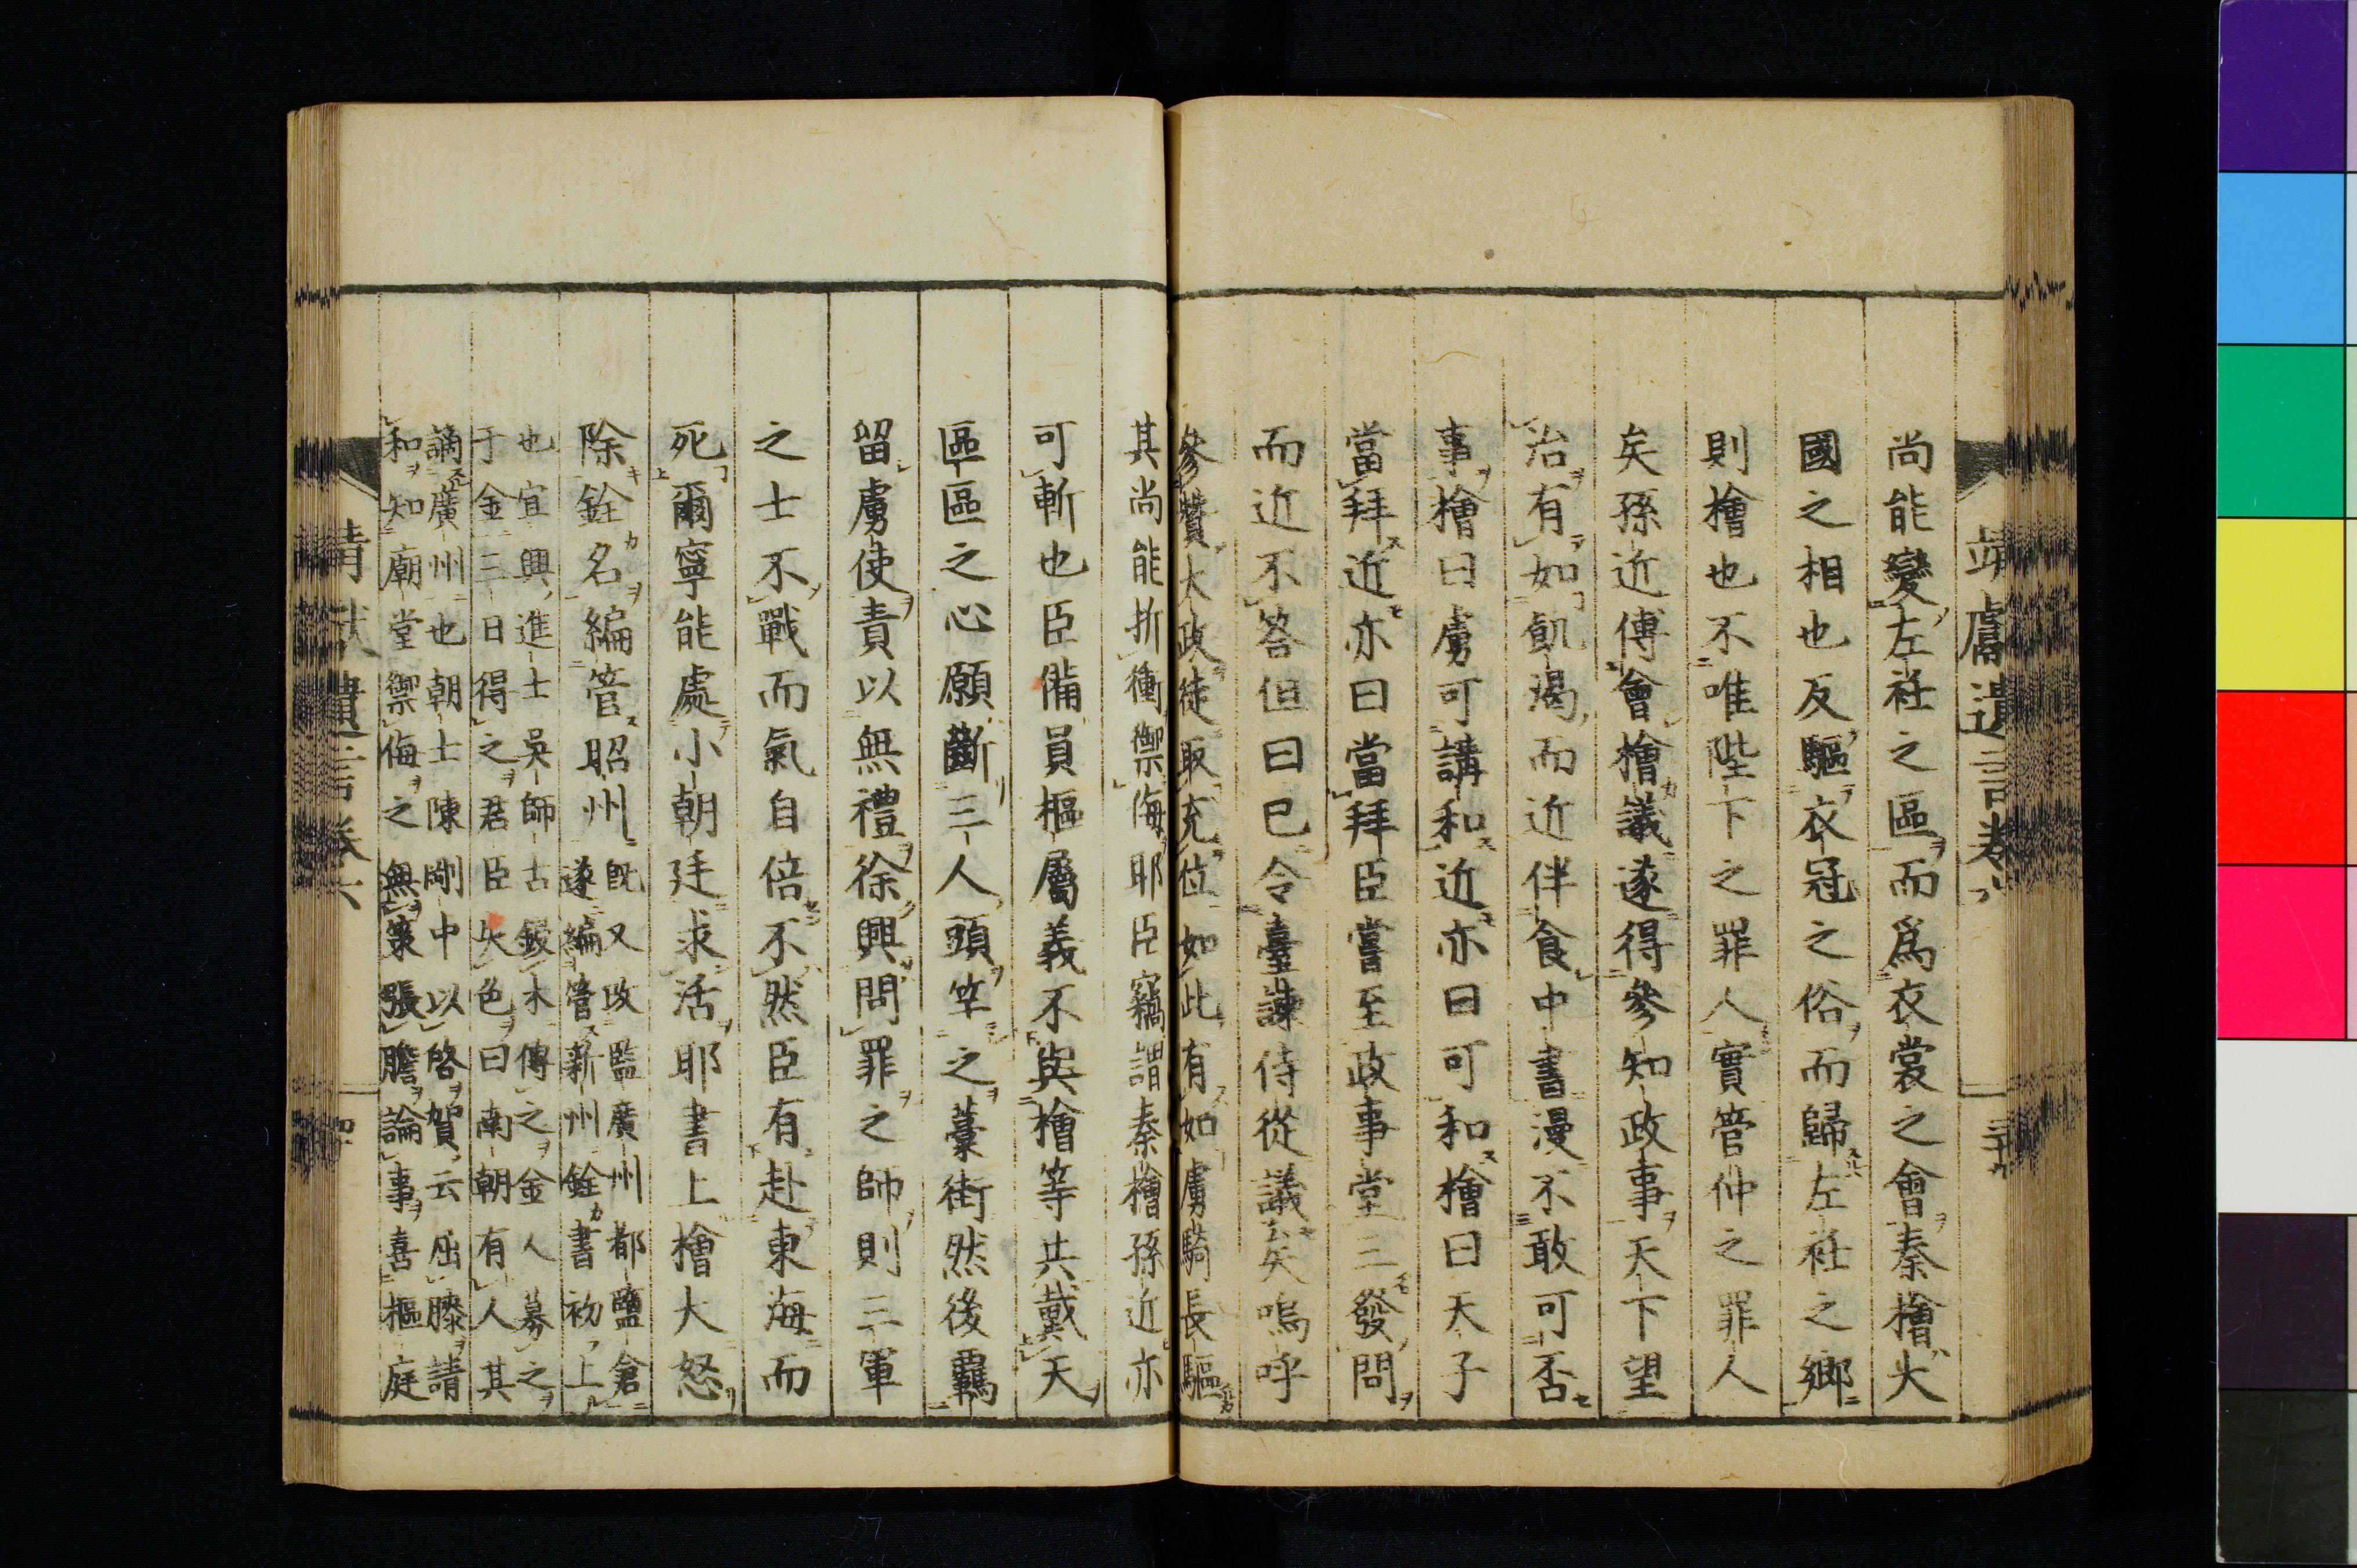 靖獻遺言卷六
尚能變左衽之區而爲衣裳之會秦檜大
國之相也反驅衣冠之俗而歸左衽之鄉
則檜也不唯陛下之罪人實管仲之罪人
矣孫近傅會檜議遂得參知政事天下望
治有如飢渴而近伴食中書漫不敢可否
事檜曰虜可講和近亦曰可和檜曰天子
當拜近亦曰當拜臣嘗至政事堂三發問
而近不荅但曰已令臺諫侍從議矣嗚呼
參贊大政徒取充位如此有如虜騎長驅
其尚能折衝禦侮耶臣竊謂秦檜孫近亦
可斬也臣備員樞屬義不與檜等共戴天
區區之心願斷三人頭竿之藁街然後羈
留虜使責以無禮徐興問罪之師則三軍
之士不戰而氣自倍不然臣有赴東海而
死爾寧能處小朝廷求活耶書上檜大怒
除銓名編管昭州
既又改監廣州都鹽倉
遂編管新州銓書初上
也宜興進士吳師古鋟木傳之金人募之
于金三日得之君臣失色曰南朝有人其
謫廣州也朝士陳剛中以啓賀云屈膝請
和知廟堂禦侮之無策張膽論事喜樞庭
靖獻遺言卷六